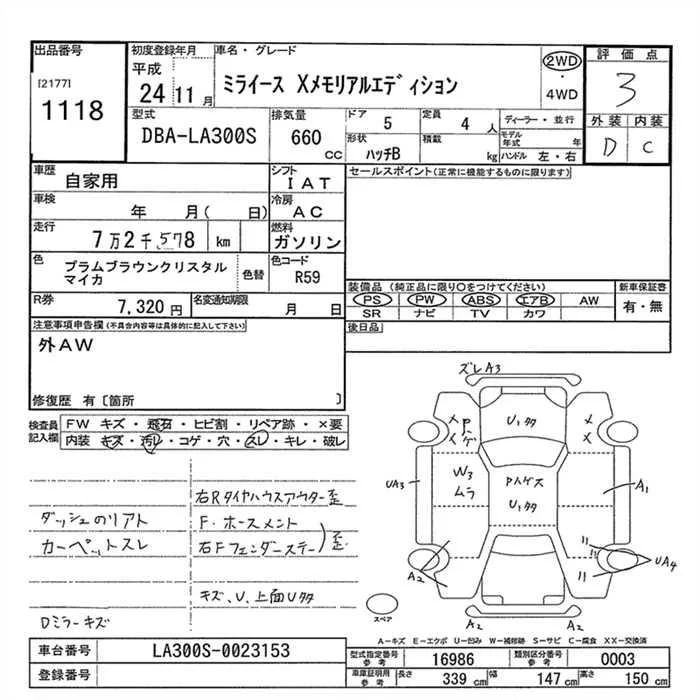 出品番号
[2177]
1118
初度登録年月
平成
24 11 月
車名・グレード
ミライース Xメモリアルエディション
2WD
・
4WD
評価点
3
外装 内装
D C
型式
DBA-LA300S
排気量
660 CC
ドア 5
定員 4 人
形状 ハッチB
積載 kg
ディーラー・並行
モデル年式 年
ハンドル 左・右
車歴 自家用
シフト IAT
車検 年 月( 日)
冷房 AC
走行 7万2千,578 km
燃料 ガソリン
色 プラムブラウンクリスタルマイカ
色替
色コード R59
R券 7,320円
名変通知期限 月 日
セールスポイント(正常に機能するものに限ります)
装備品 (純正品に限り○をつけてください)
PS PW ABS エアB AW
SR ナビ TV カワ
新車保証書
有・無
後日品
注意事項申告欄(不具合内容等は具体的に記入して下さい)
外AW
修復歴 有〔箇所 〕
検査員記入欄
FW キズ・飛石・ヒビ割・リペア跡・×要
内装 キズ・汚レ・コゲ・穴・スレ・キレ・破レ
右Rタイヤハウスアウター歪
ダッシュのリアト
F.ホースメント
カーペットスレ
右Fフェンダーステー)歪
キズ、U、上面Uタ
Dミラーキズ
ズレA3
Uタ
Pハゲ
UA3
W3
ムラ
Pハゲズ
Uタ
A1
A2
UA4
A2
A2
スペア
A-キズ E-エクボ U-凹み W-補修跡 S-サビ C-腐食 XX-交換済
車台番号 LA300S-0023153
登録番号
型式指定番号 参考 16986
類別区分番号 参考 0003
車庫証明用 参考
長さ 339 cm
幅 147 cm
高さ 150 cm